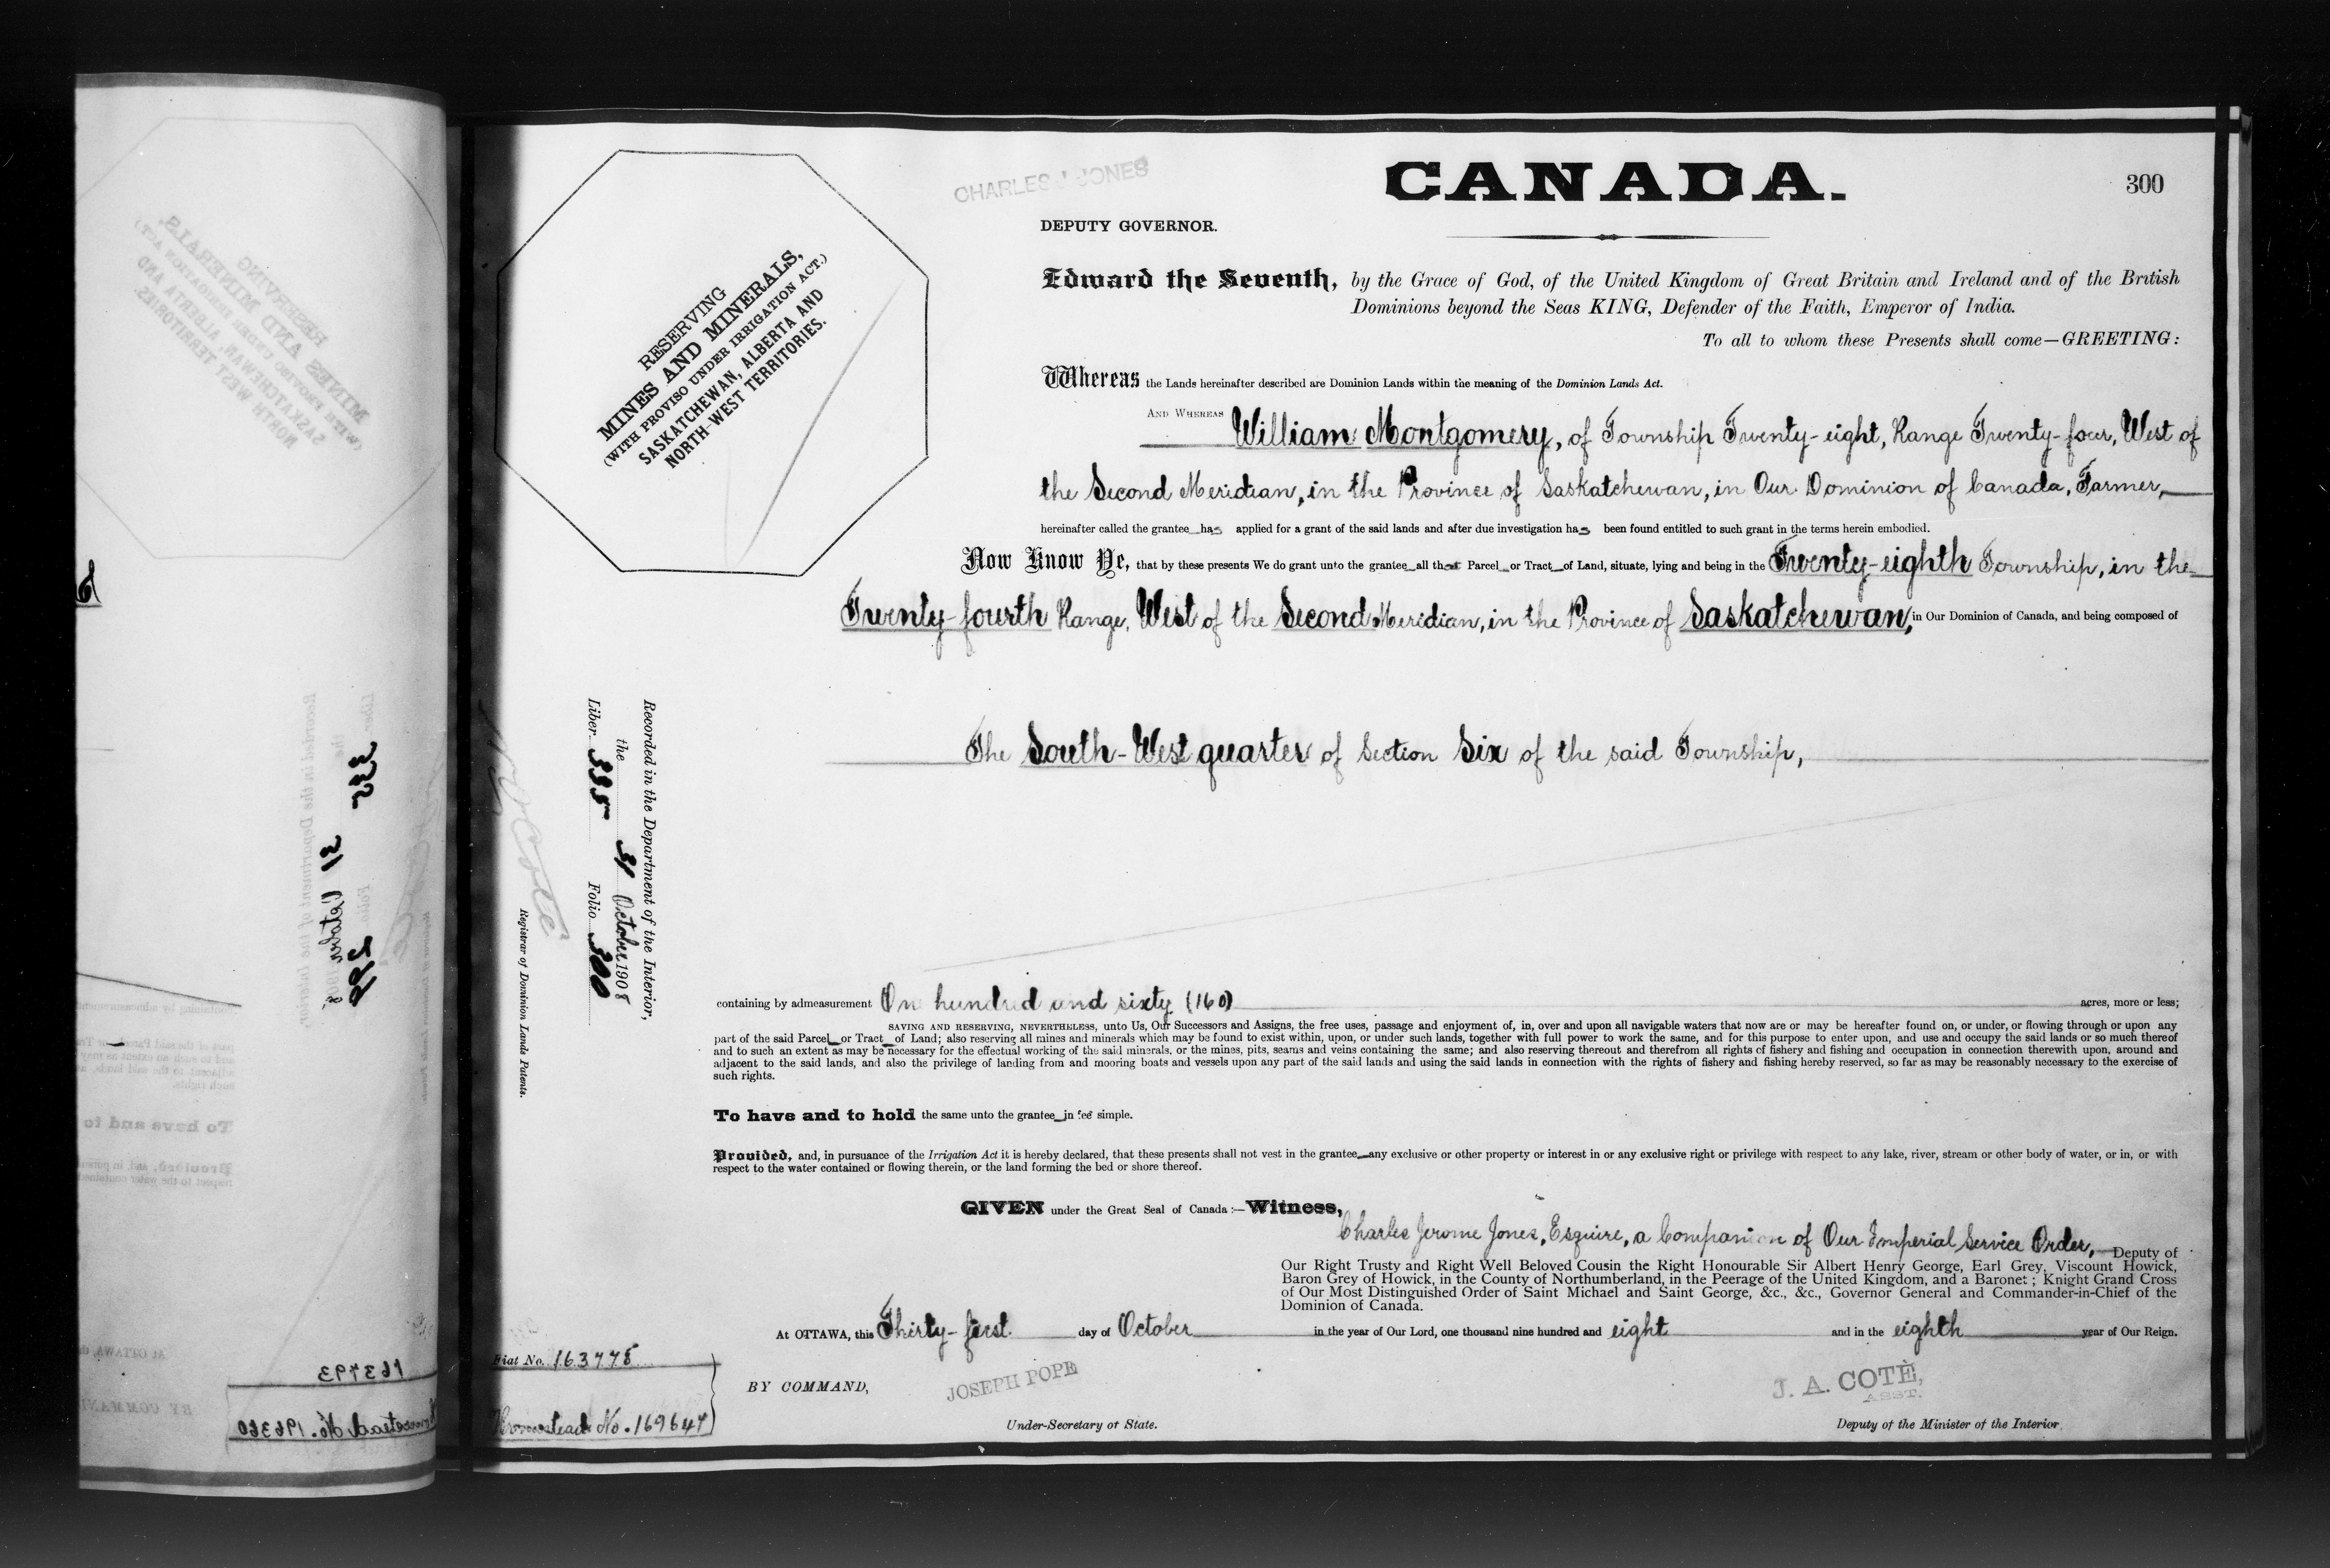 CANADA.
300
CHARLES J JONES
DEPUTY GOVERNOR.
RESERVING
MINES AND MINERALS,
(WITH PROVISO UNDER IRRIGATION ACT.)
SASKATCHEWAN, ALBERTA AND
NORTH-WEST TERRITORIES.
Edward the Seventh, by the Grace of God, of the United Kingdom of Great Britain and Ireland and of the British
Dominions beyond the Seas KING, Defender of the Faith, Emperor of India.
To all to whom these Presents shall come—GREETING:
Whereas the Lands hereinafter described are Dominion Lands within the meaning of the Dominion Lands Act.
AND WHEREAS William Montgomery, of Township Twenty-eight, Range Twenty-four, West of
the Second Meridian, in the Province of Saskatchewan, in Our Dominion of Canada, Farmer,
hereinafter called the grantee has applied for a grant of the said lands and after due investigation has been found entitled to such grant in the terms herein embodied.
Now Know Ye, that by these presents We do grant unto the grantee all that Parcel or Tract of Land, situate, lying and being in the Twenty-eighth Township, in the
Twenty-fourth Range, West of the Second Meridian, in the Province of Saskatchewan, in Our Dominion of Canada, and being composed of
The South-West quarter of Section Six of the said Township,
Recorded in the Department of the Interior,
the 31 October 1908
Liber 335 Folio 300
N O Coté
Registrar of Dominion Lands Patents.
containing by admeasurement On hundred and sixty (160) acres, more or less;
SAVING AND RESERVING, NEVERTHELESS, unto Us, Our Successors and Assigns, the free uses, passage and enjoyment of, in, over and upon all navigable waters that now are or may be hereafter found on, or under, or flowing through or upon any
part of the said Parcel or Tract of Land; also reserving all mines and minerals which may be found to exist within, upon, or under such lands, together with full power to work the same, and for this purpose to enter upon, and use and occupy the said lands or so much thereof
and to such an extent as may be necessary for the effectual working of the said minerals, or the mines, pits, seams and veins containing the same; and also reserving thereout and therefrom all rights of fishery and fishing and occupation in connection therewith upon, around and
adjacent to the said lands, and also the privilege of landing from and mooring boats and vessels upon any part of the said lands and using the said lands in connection with the rights of fishery and fishing hereby reserved, so far as may be reasonably necessary to the exercise of
such rights.
To have and to hold the same unto the grantee in fee simple.
Provided, and, in pursuance of the Irrigation Act it is hereby declared, that these presents shall not vest in the grantee any exclusive or other property or interest in or any exclusive right or privilege with respect to any lake, river, stream or other body of water, or in, or with
respect to the water contained or flowing therein, or the land forming the bed or shore thereof.
GIVEN under the Great Seal of Canada:—Witness,
Charles Jerome Jones, Esquire, a Companion of Our Imperial Service Order, Deputy of
Our Right Trusty and Right Well Beloved Cousin the Right Honourable Sir Albert Henry George, Earl Grey, Viscount Howick,
Baron Grey of Howick, in the County of Northumberland, in the Peerage of the United Kingdom, and a Baronet; Knight Grand Cross
of Our Most Distinguished Order of Saint Michael and Saint George, &c., &c., Governor General and Commander-in-Chief of the
Dominion of Canada.
At OTTAWA, this Thirty-first day of October in the year of Our Lord, one thousand nine hundred and eight and in the eighth year of Our Reign.
Fiat No. 163778
Homestead No. 169647
BY COMMAND,
JOSEPH POPE
Under-Secretary of State.
J. A. COTÈ,
ASST.
Deputy of the Minister of the Interior.